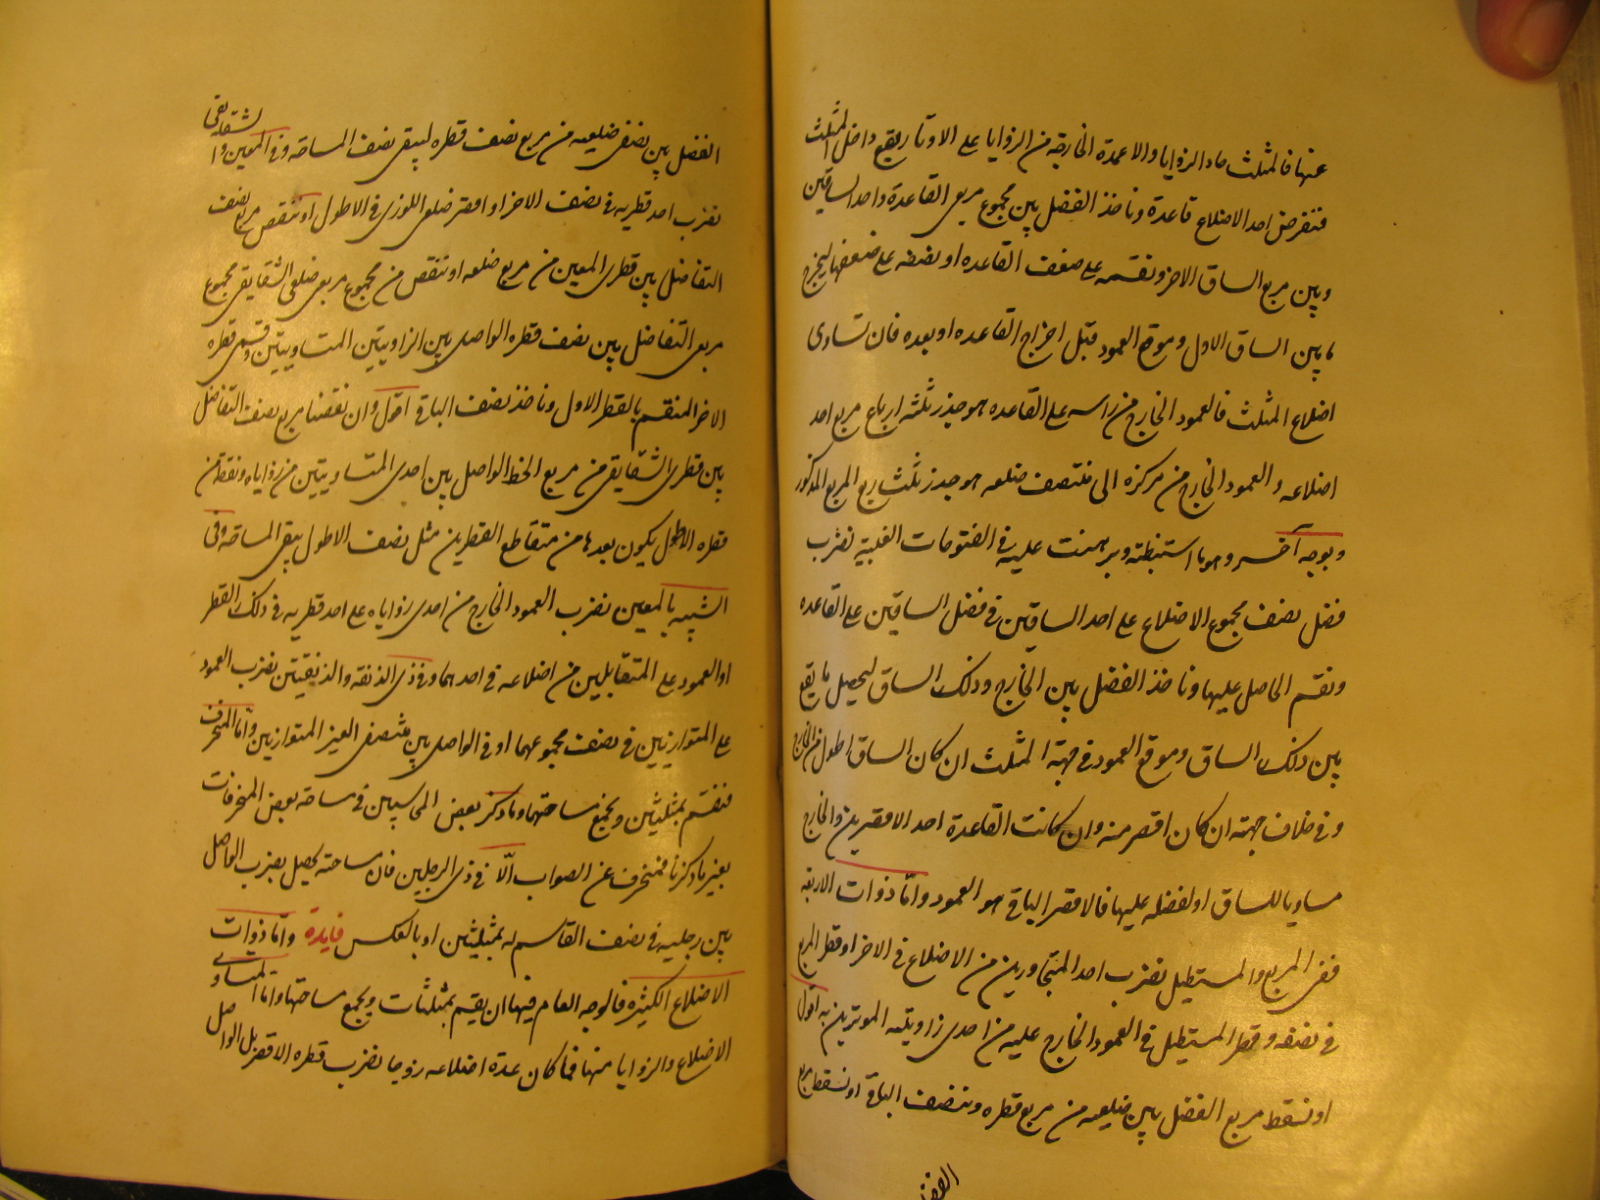 عنها فالمثلث حاد الزوايا والاعمدة الخارجة من الزوايا على الاوتار يقع داخل المثلث
فنفرض احد الاضلاع قاعدة وناخذ الفضل بين مجموع مربعى القاعدة واحد الساقين
وبين مربع الساق الاخر ونقسمه على ضعف القاعده او نصفه على ضعفها ليخرج
ما بين الساق الاول وموقع العمود قبل اخراج القاعده او بعده فان تساوى
اضلاع المثلث فالعمود الخارج من راسه على القاعده هو جذر ثلثة ارباع مربع احد
اضلاعه والعمود الخارج من مركزه الى منتصف ضلعه هو جذر ثلث ربع المربع المذكور
وبوجه آخر وهو ما استنبطته وبرهنت عليه فى الفتوحات الغيبية نضرب
فضل نصف مجموع الاضلاع على احد الساقين فى فضل الساقين على القاعده
ونقسم الحاصل عليها وناخذ الفضل بين الخارج وذلك الساق ليحصل ما يقع
بين ذلك الساق وموقع العمود فى جهة المثلث ان كان الساق اطول من الخارج
وفى خلاف جهته ان كان اقصر منه وان كانت القاعدة احد الاقصرين والخارج
مساويا للساق او لفضله عليها فالاقصر الباقى هو العمود واما ذوات الاربعة
ففى المربع والمستطيل نضرب احد المتجاورين من الاضلاع فى الاخر او قطر المربع
فى نصفه وقطر المستطيل فى العمود الخارج عليه من احدى زاويتيه الموترتين به اقول
او نسقط مربع الفضل بين ضلعيه من مربع قطره وننصف الباقى او نسقط مربع
الفضل
الفضل بين نصفى ضلعيه من مربع نصف قطره ليبقى نصف المساحة وفى المعين والشقايقى
نضرب احد قطريه فى نصف الاخر او اقصر ضلعى اللوزى فى الاطول او ننقص مربع نصف
التفاضل بين قطرى المعين من مربع ضلعه او ننقص من مجموع مربعى ضلعى الشقايقى مجموع
مربعى التفاضل بين نصف قطره الواصل بين الزاويتين المتساويتين وقسمى قطره
الاخر المنقسم بالقطر الاول وناخذ نصف الباقى اقول وان نقصنا مربع نصف التفاضل
بين قطرى الشقايقى من مربع الخط الواصل بين احدى المتساويتين من زواياه ونقطة من
قطره الاطول يكون بعدها من متقاطع القطرين مثل نصف الاطول يبقى المساحة وفى
الشبيه بالمعين نضرب العمود الخارج من احدى زواياه على احد قطريه فى ذلك القطر
او العمود على المتقابلين من اضلاعه فى احدهما وفى ذى الذنقه والذنقتين نضرب العمود
على المتوازيين فى نصف مجموعهما او فى الواصل بين منتصفى الغير المتوازيين واما المنحرف
فنقسم بمثلثين ونجمع مساحتهما وما ذكر بعض المحاسبين فى مساحة بعض المنحرفات
بغير ما ذكرنا فمنحرف عن الصواب الّا فى ذى الرجلين فان مساحته يحصل بضرب الواصل
بين رجليه فى نصف القاسم له بمثلثين او بالعكس فايدة واما ذوات
الاضلاع الكثيره فالوجه العام فيها ان يقسم بمثلثات ويجمع مساحتها واما المتساوى
الاضلاع والزوايا منها فما كان عدة اضلاعه زوجا نضرب قطره الاقصر بل الواصل